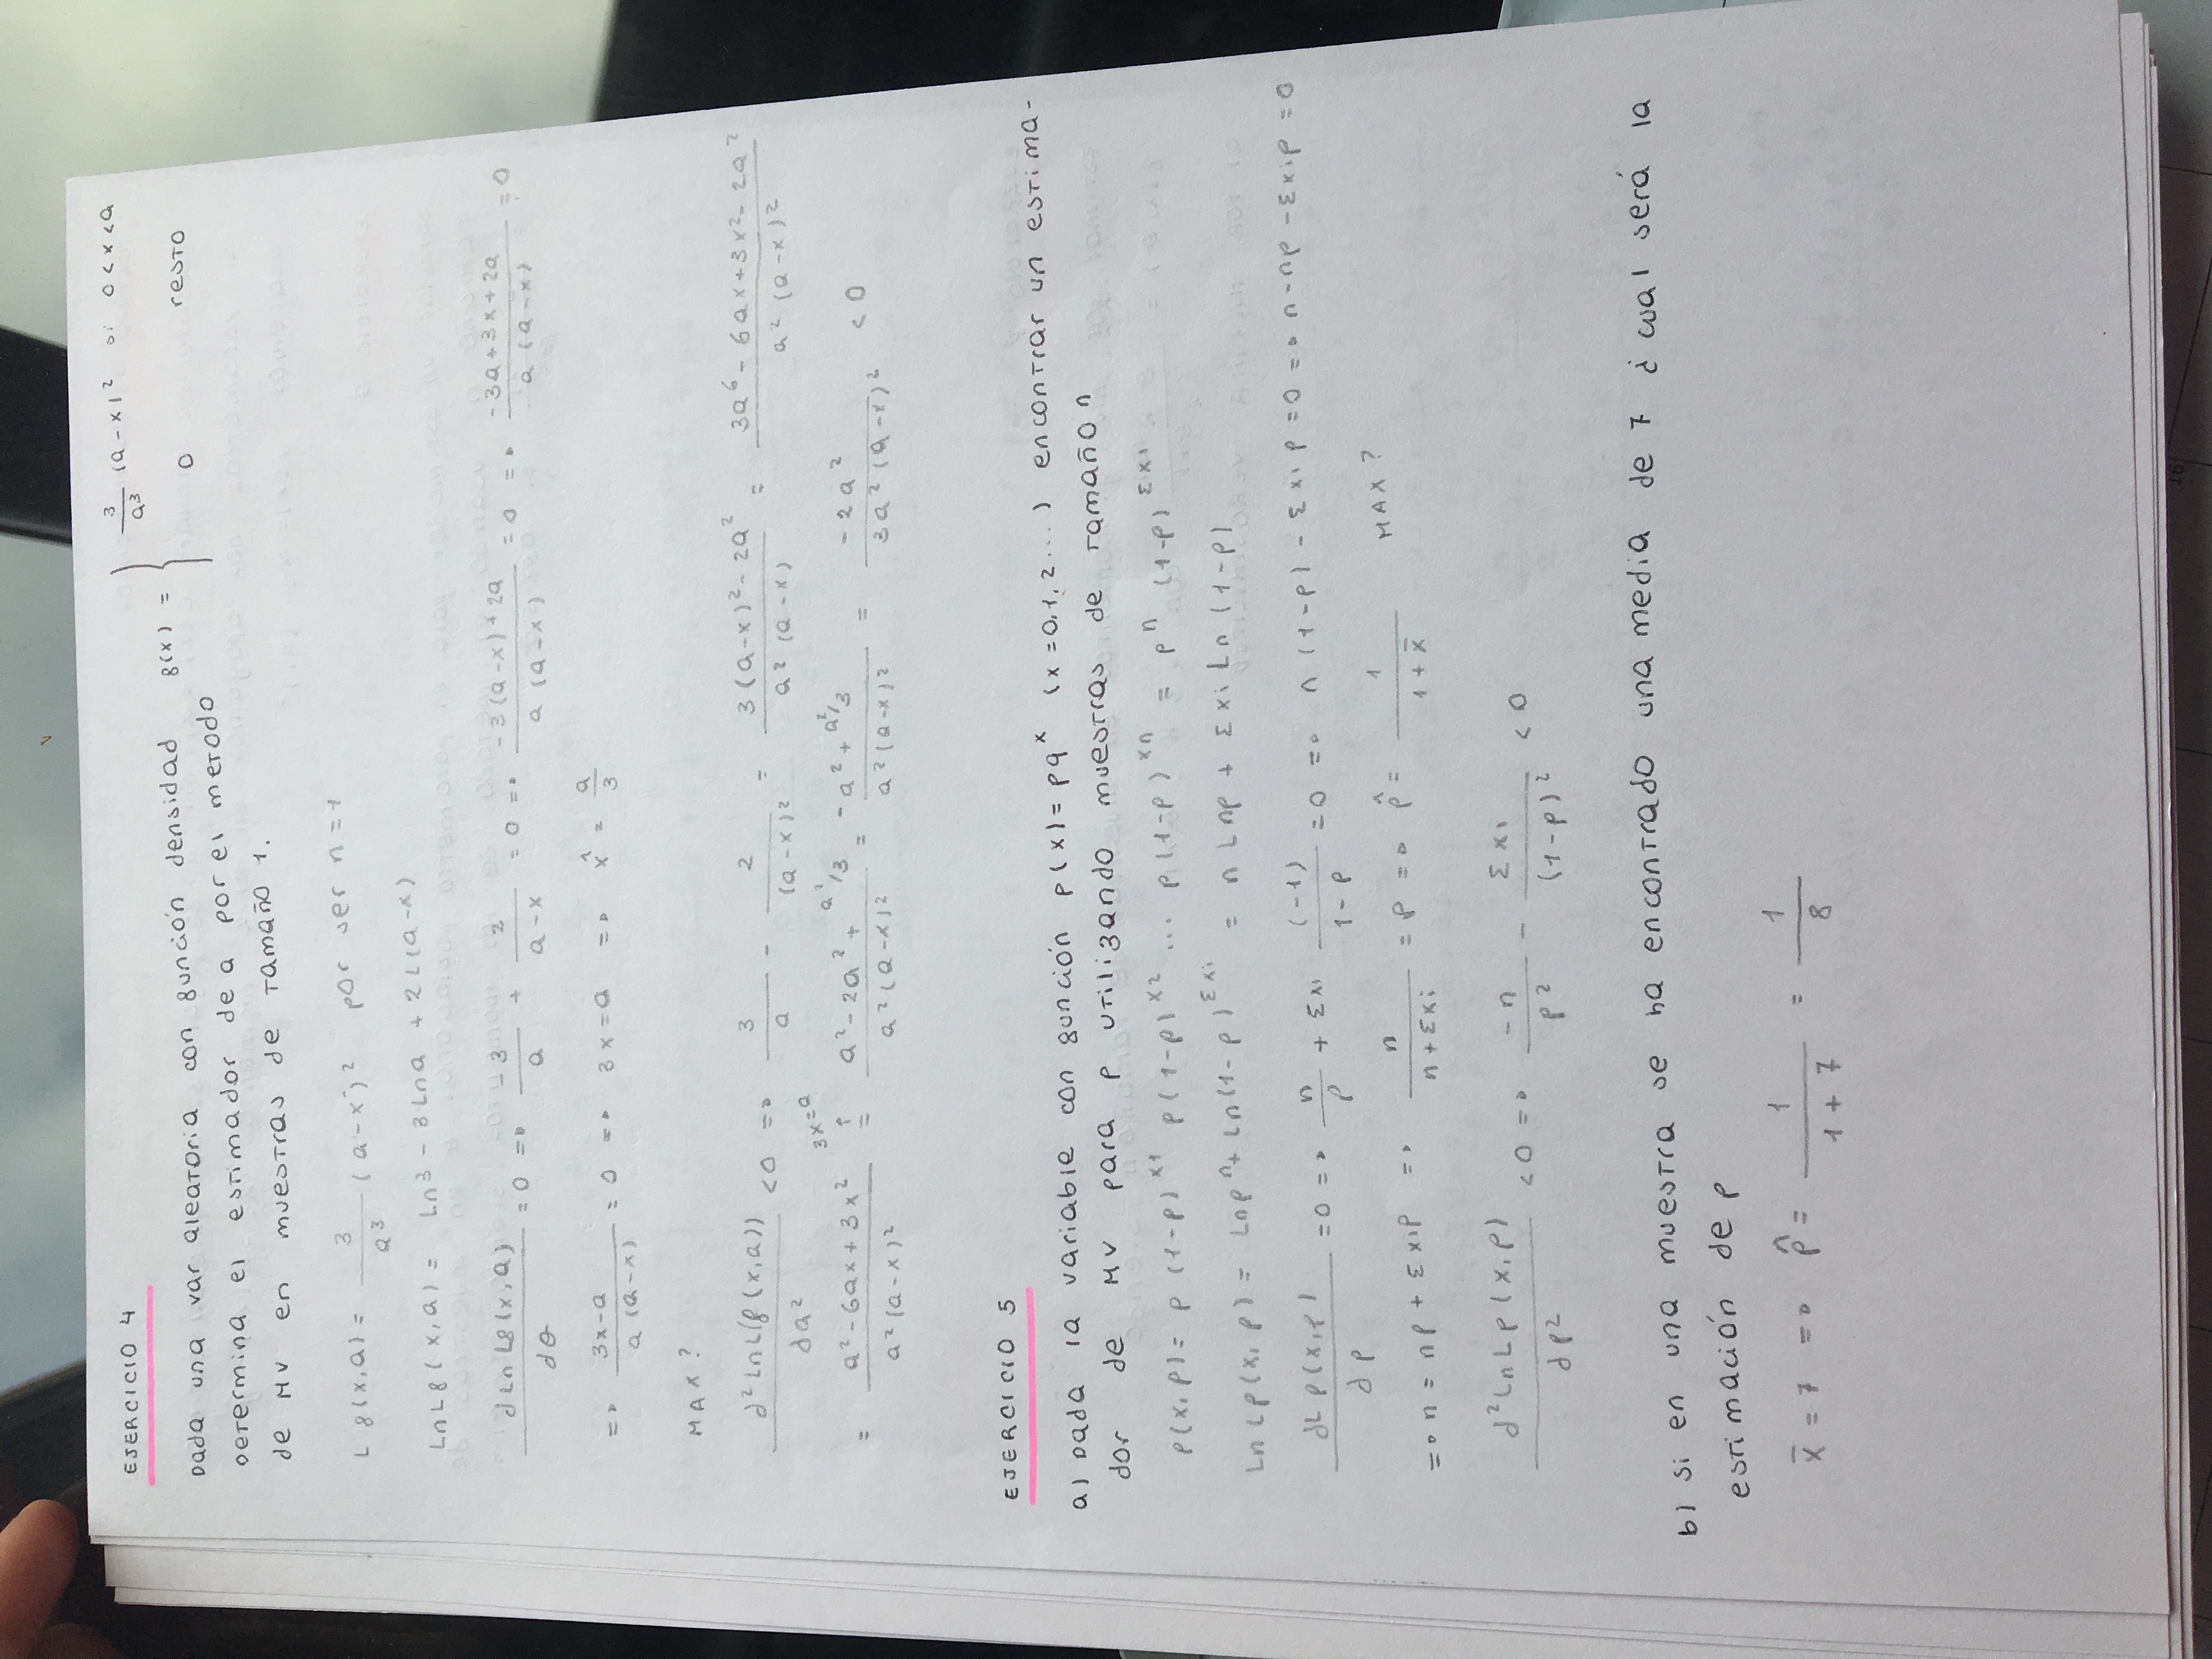 EJERCICIO 4
Dada una var aleatoria con función densidad f(x) = { 3/a³ (a-x)² si 0<x<a
0 resto
Determina el estimador de a por el metodo
de MV en muestras de tamaño 1.
L f(x,a) = 3/a³ (a-x)² por ser n=1
LnLf(x,a) = Ln3 - 3Lna + 2L(a-x)
dLnLf(x,a)/dθ = 0 => -3/a + 2/(a-x) = 0 => (-3(a-x)+2a)/(a(a-x)) = 0 => (-3a+3x+2a)/(a(a-x)) = 0
=> (3x-a)/(a(a-x)) = 0 => 3x=a => x̂ = a/3
MAX?
d²LnL(f(x,a))/da² <0 => 3/a - 2/(a-x)² = (3(a-x)²-2a²)/(a²(a-x)) = (3a⁶-6ax+3x²-2a²)/(a²(a-x)²)
3x=a ↑
= (a²-6ax+3x²)/(a²(a-x)²) = (a²-2a²+a²/3)/(a²(a-x)²) = (-a²+a²/3)/(a²(a-x)²) = -2a²/(3a²(a-x)²) <0
EJERCICIO 5
a) Dada la variable con función p(x)=pqˣ (x=0,1,2...) encontrar un estima-
dor de MV para p utilizando muestras de tamaño n
p(x,p) = p(1-p)^x1 p(1-p)^x2 ... p(1-p)^xn = pⁿ (1-p)^Σxi
LnLp(x,p) = Lnpⁿ+Ln(1-p)^Σxi = nLnp + ΣxiLn(1-p)
dLp(x,p)/dp = 0 => n/p + Σxi (-1)/(1-p) = 0 => n(1-p) - Σxip = 0 => n-np-Σxip = 0
=> n = np + Σxip => n/(n+Σxi) = p => p̂ = 1/(1+x̄) MAX?
d²LnLp(x,p)/dp² <0 => -n/p² - Σxi/(1-p)² <0
b) si en una muestra se ha encontrado una media de 7 ¿cual será la
estimación de p
x̄ = 7 => p̂ = 1/(1+7) = 1/8